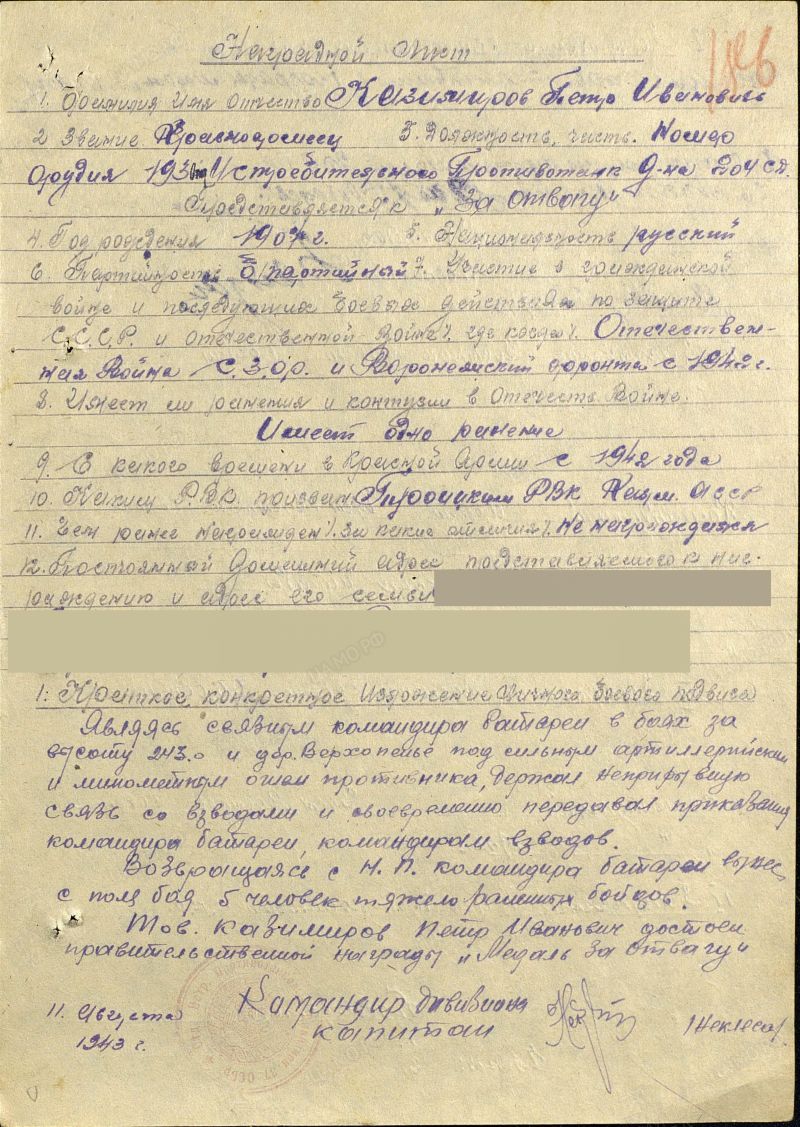 Наградной Лист
1. Фамилия Имя Отчество Казимиров Петр Иванович
2 Звание Красноармеец 3. Должность, часть. Номер
орудия 193 Отд Истребительного Противотанк д-на 204 сд.
Представляется к „За отвагу"
4. Год рождения 1907 г. 5. Национальность русский
6. Партийность б/партийный 7. Участие в гражданской
войне и последующих боевых действиях по защите
С.С.С.Р. и отечественной войне/. где когда/. Отечествен-
ная Война С.З.Фр. и Воронежский фронта с 1942 г.
8. Имеет ли ранения и контузии в Отечеств. Войне.
Имеет одно ранение
9. С какого времени в Красной Армии с 1942 года
10. Каким Р.В.К. призван РВК АССР
11. Чем ранее награжден/. За какие отличия/. Не награждался
12. Постоянный Домашний адрес представляемого к наг-
раждению и адрес его семьи
1. Краткое, конкретное Изложение личного боевого подвига
Являясь связным командира батареи в боях за
высоту 243.0 и дер. Верхопенье под сильным артиллерийским
и минометным огнем противника, держал неприрывную
связь со взводами и своевременно передавал приказания
командира батареи, командирам взводов.
Возвращаясь с Н.П. командира батареи вынес
с поля боя 5 человек тяжело раненых бойцов.
Тов. Казимиров Петр Иванович достоен
правительственной награды „Медаль За отвагу"
11. Августа Командир дивизиона
1943 г. капитан